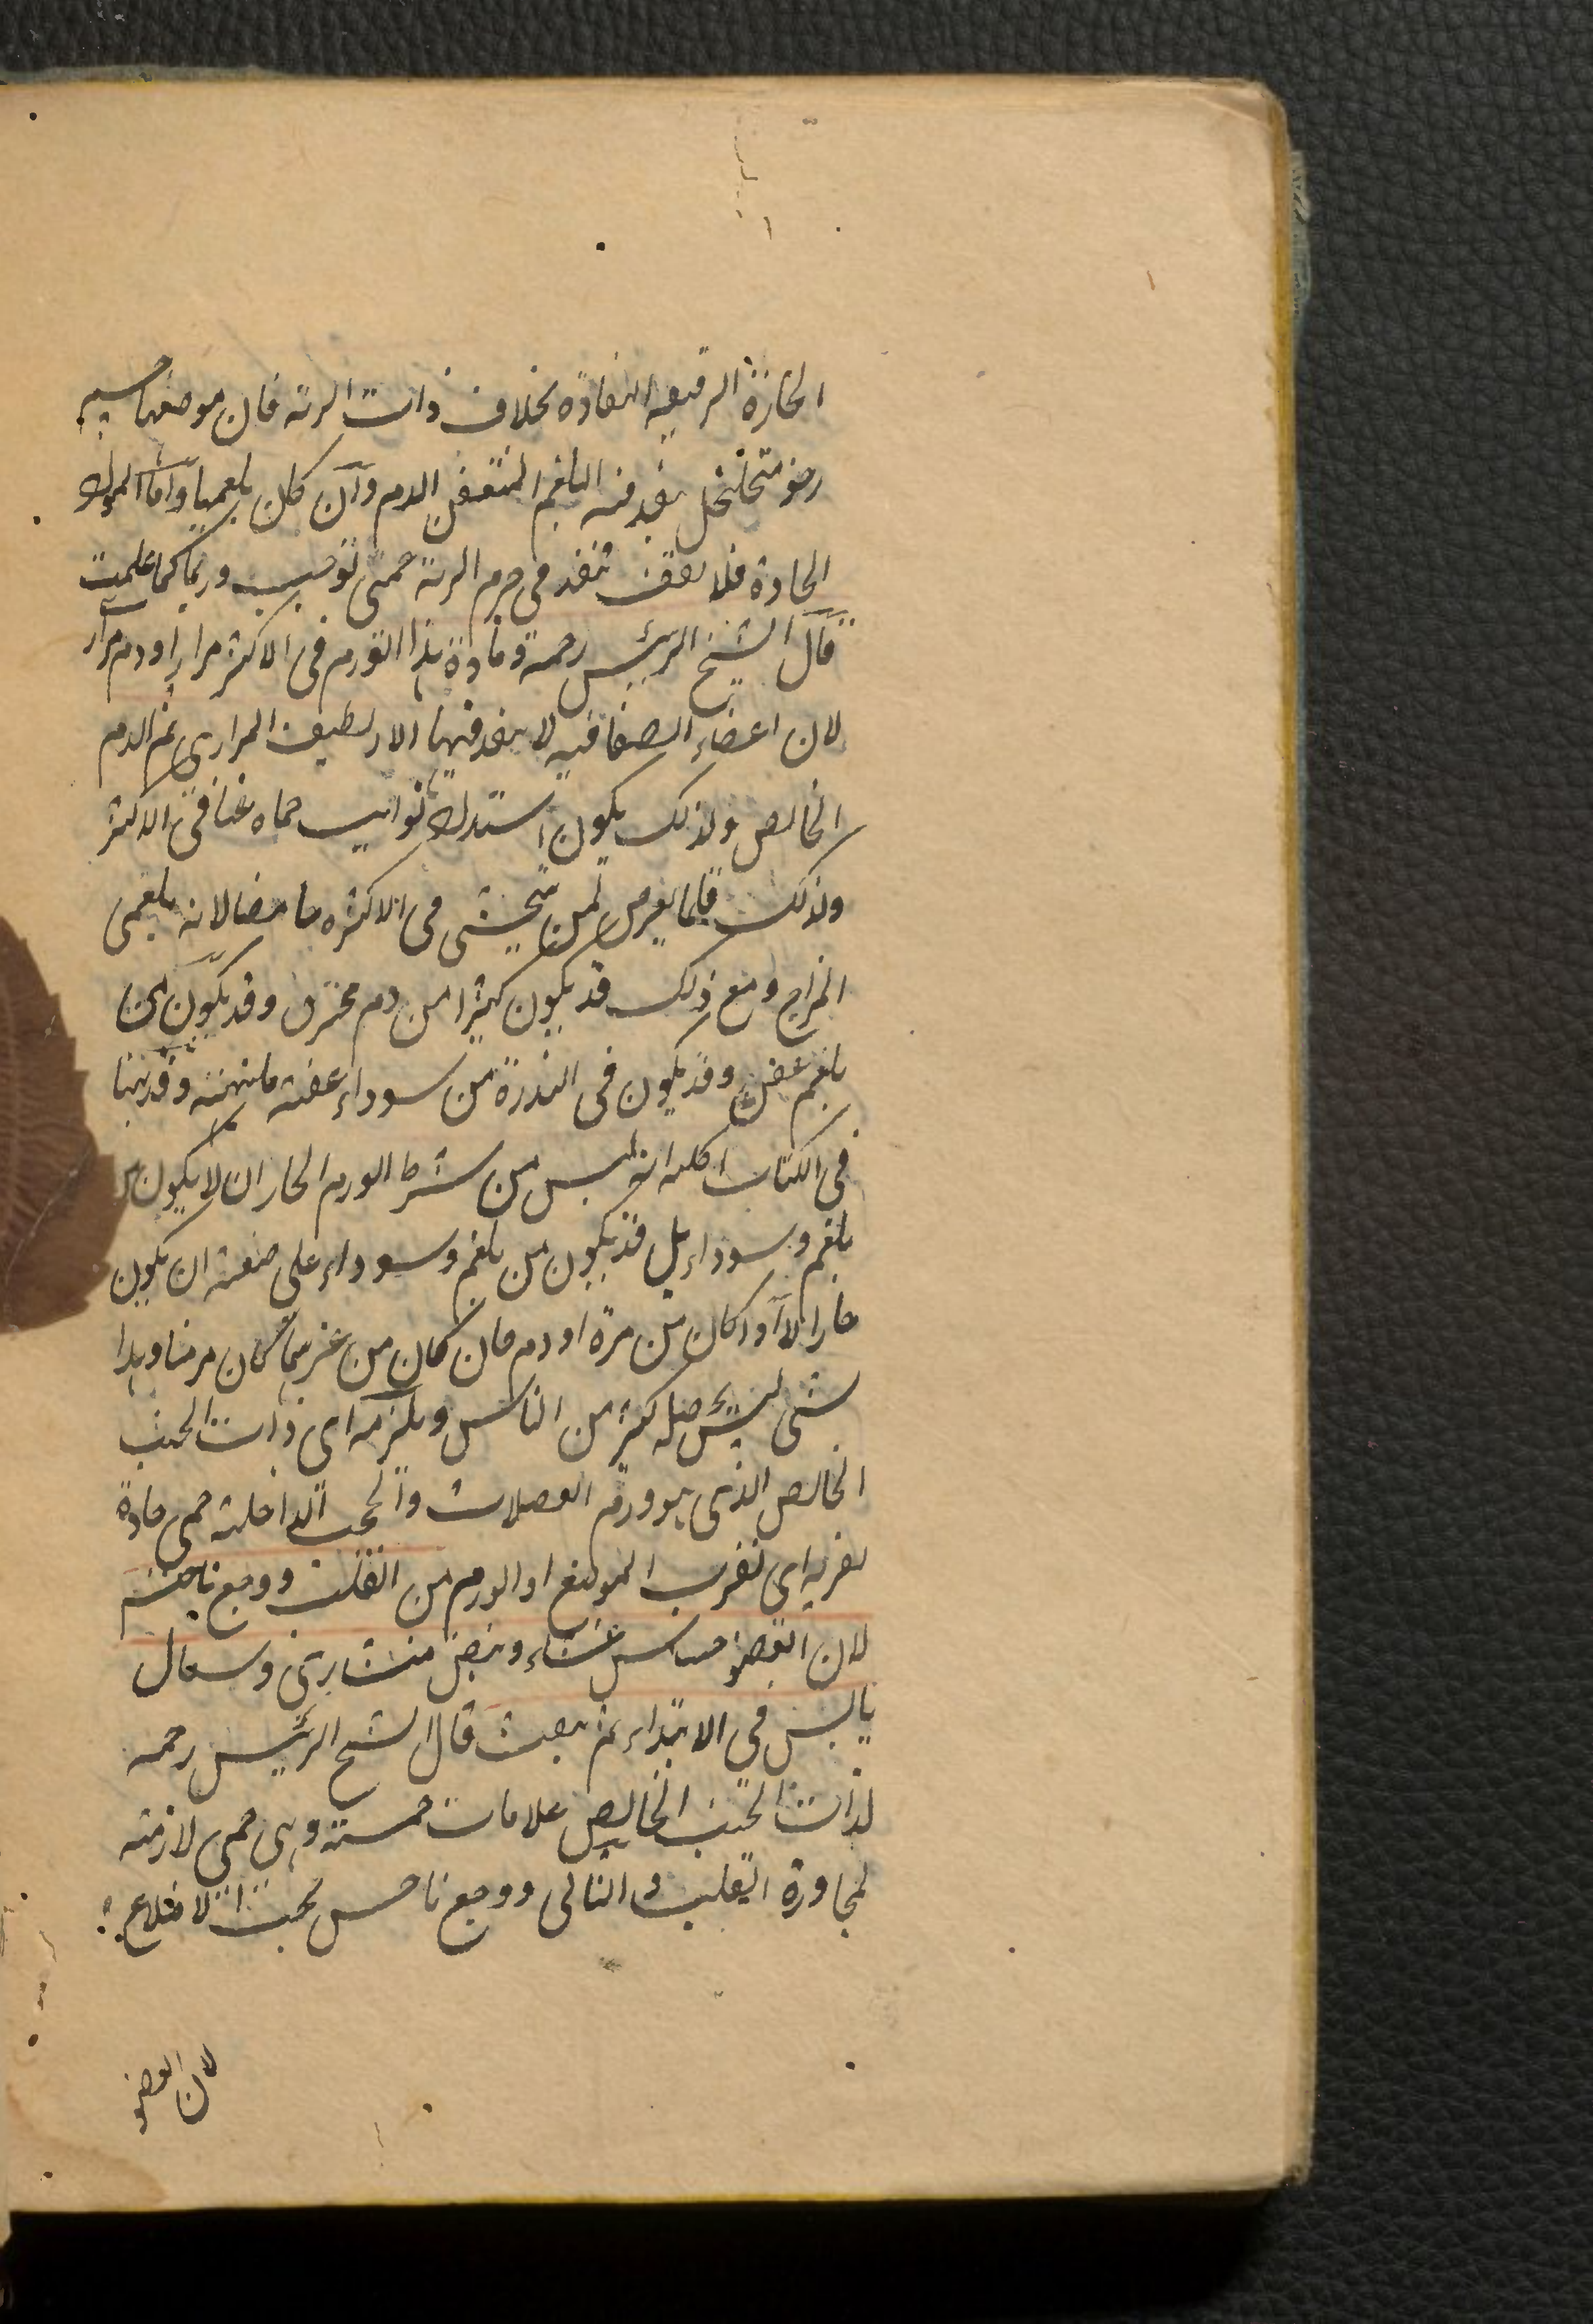 الحارة الرقيقه النفاذه بخلاف ذات الرئه فان موضعها جسم
رخو متخلخل ينفد فيه البلغم المتعفن الدم وان كان بلغميا واما المواد
الحادة فلا تقف تنفد في جرم الرئة حتى توجب وربما كما علمت
قال الشيخ الرئيس رحمه ومادة هذا التورم في الاكثر مرار او دم مراري
لان اعضاء الصفاقيه لا ينفد فيها الا لطيف المراري ثم الدم
الخالص ولذلك يكون اشتداد نوايب حماه غبا في الاكثر
ولذلك قلما يعرض لمن يتجشى في الاكثر حامضا لانه بلغمى
المزاج ومع ذلك قد يكون كثيرا من دم محترق وقد يكون من
بلغم عفن وقد يكون في الندرة من سوداء عفنه ملتهبه وقد بينا
في الكتاب الكليه انه ليس من شرط الورم الحار ان لا يكون من
بلغم وسوداء بل قد يكون من بلغم وسوداء على صفته ان يكون
حارا الا اذا كان من مرة او دم فان كان من غيرهما كان مزمنا وهذا
شى ليس يحصله كثير من الناس ويلزمه اى ذات الجنب
الخالص الذى هو ورم العضلات والحجب الداخلية حمى حادة
لقربه اى لقرب الموضع او الورم من القلب ووجع ناخس
لان العضو حساس غشاء ونبض منشارى وسعال
يابس في الابتداء ثم ينفث قال الشيخ الرئيس رحمه
لذات الجنب الخالص علامات خمسة وهى حمى لازمه
لمجاورة القلب والثانى ووجع ناخس تحت الاضلاع
لان العضو